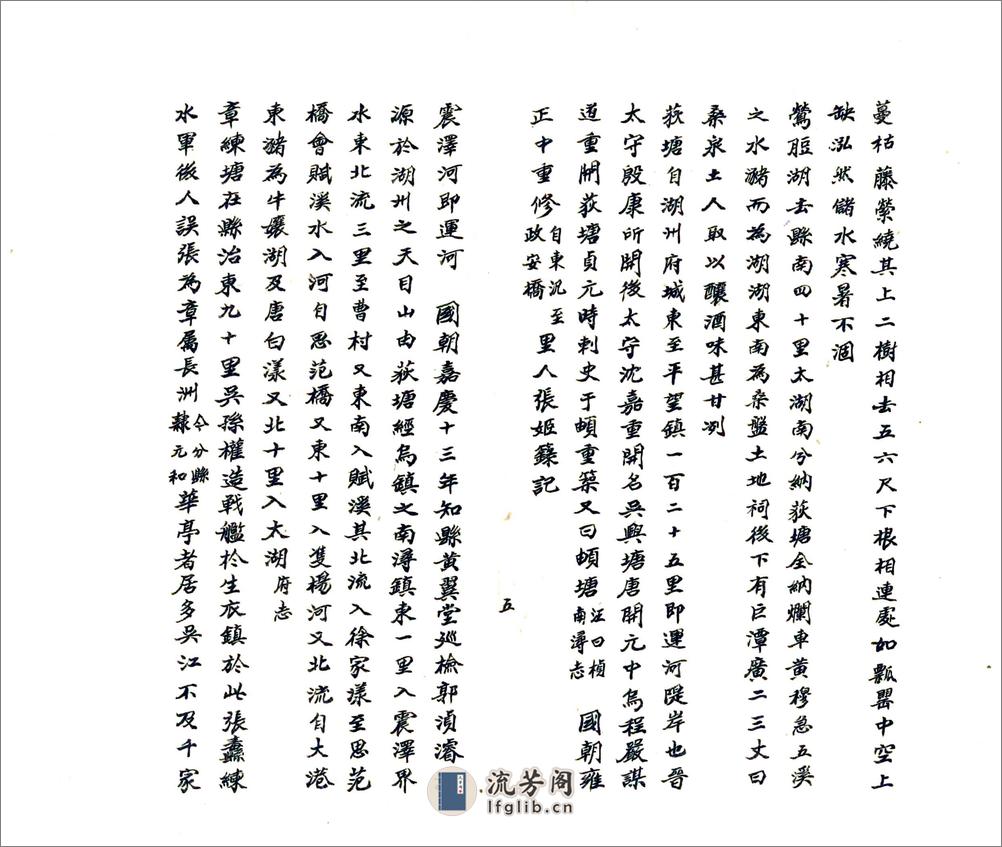 蔓枯藤縈繞其上二樹相去五六尺下根相連處如甑罌中空上
缺泓然儲水寒暑不涸
鶯脰湖去縣南四十里太湖南分納荻塘全納爛車黄穆急五溪
之水瀦而為湖湖東南為桑盤土地祠後下有巨潭廣二三丈曰
桑泉土人取以釀酒味甚甘冽
荻塘自湖州府城東至平望鎮一百二十五里即運河隄岸也晉
太守殷康所開後太守沈嘉重開名吳興塘唐開元中烏程嚴謀
道重開荻塘貞元時刺史于頔重築又曰頔塘汪曰楨南潯志 國朝雍
正中重修自東汎至政安橋里人張姬籙記
五
震澤河即運河 國朝嘉慶十三年知縣黃翼堂巡檢郭湏濬
源於湖州之天目山由荻塘經烏鎮之南潯鎮東一里入震澤界
水東北流三里至曹村又東南入賦溪其北流入徐家漾至思范
橋會賦溪水入河自思范橋又東十里入雙楊河又北流自大港
東瀦為牛孃湖及唐白漾又北十里入太湖府志
章練塘在縣治東九十里吳孫權造戰艦於生衣鎮於此張蠹練
水軍後人誤張為章屬長洲今分縣隸元和華亭者居多吳江不及千家
流芳阁
lfglib.cn